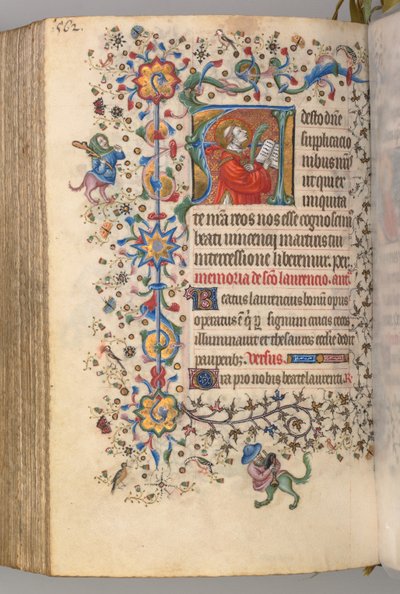 562.
desto dñe
supplicacio
nibus nr̃is
ut qui ex
iniquita
te nr̃a reos nos esse cognoscim̃
beati vincencij martiris tui
intercessione liberemur. per
memoria de sc̃o laurencio. ant.
Beatus laurencius bonũ opus
operatus ẽ qui per signum crucis cecos
illuminavit et thesauros eccl̃ie dedit
pauperibꝫ. Versus.
Ora pro nobis beate laurenti. R.